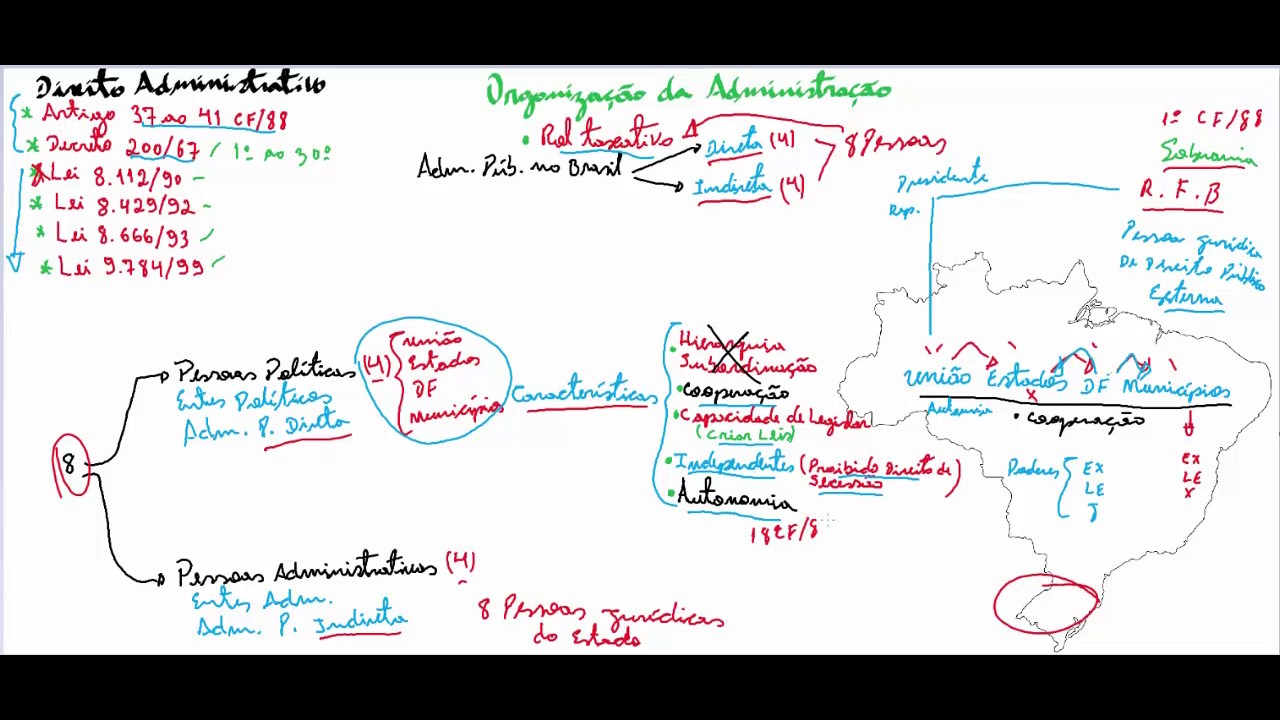 Direito Administrativo
* Artigo 37 ao 41 CF/88
* Decreto 200/67 1º ao 30º
* Lei 8.112/90
* Lei 8.429/92
* Lei 8.666/93
* Lei 9.784/99
Organização da Administração
• Rol taxativo
Adm. Púb. no Brasil
Direta (4)
Indireta (4)
8 Pessoas
1º CF/88
Soberania
R. F. B
Pessoa jurídica
De Direito Público
Externa
Presidente
Rep.
União Estados DF Municípios
X
Autonomia
• cooperação
Poderes
EX
LE
J
EX
LE
X
8
Pessoas Políticas (4)
Entes Políticos
Adm. P. Direta
União
Estados
DF
Municípios
Características
• Hierarquia
Subordinação
• cooperação
• Capacidade de Legislar
(Criar Leis)
• Independentes (Proibido Direito de
Secessão)
• Autonomia
18 CF/8
Pessoas Administrativas (4)
Entes Adm.
Adm. P. Indireta
8 Pessoas jurídicas
do Estado